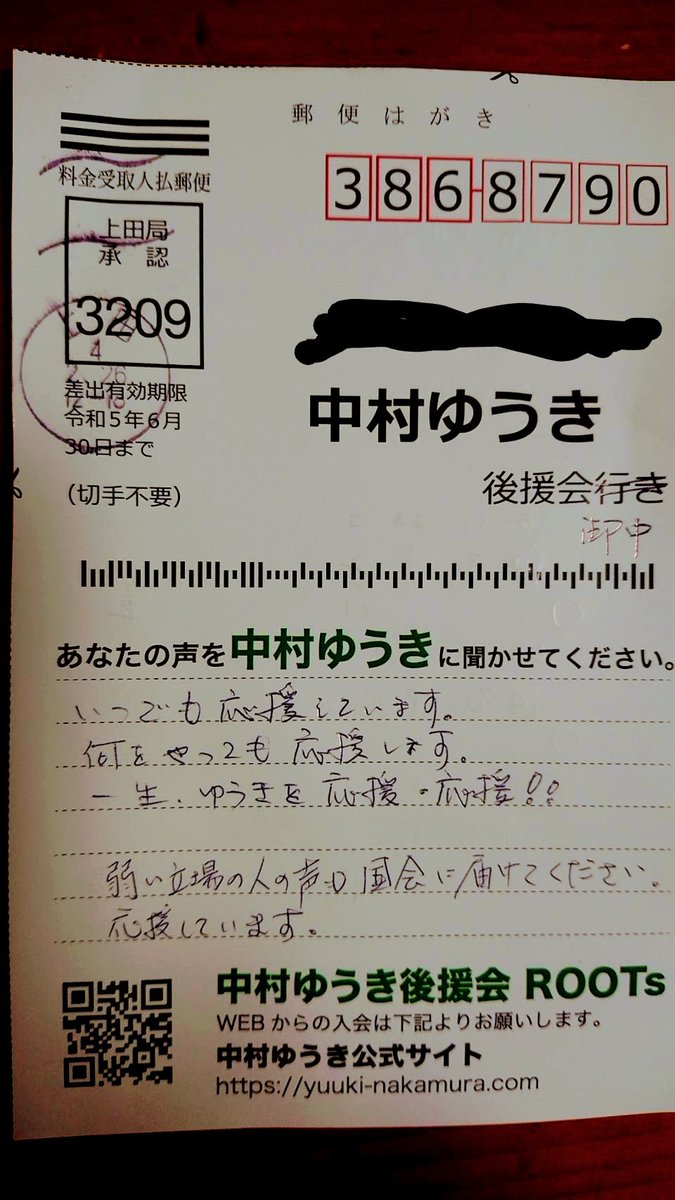 郵便はがき
料金受取人払郵便
386-8790
上田局
承認
3209
4
差出有効期限
令和5年6月
30日まで
(切手不要)
中村ゆうき
後援会行き
御中
あなたの声を中村ゆうきに聞かせてください。
いつでも応援しています。
何をやっても応援します。
一生、ゆうきを応援・応援!!
弱い立場の人の声も国会に届けてください。
応援しています。
中村ゆうき後援会 ROOTs
WEBからの入会は下記よりお願いします。
中村ゆうき公式サイト
https://yuuki-nakamura.com